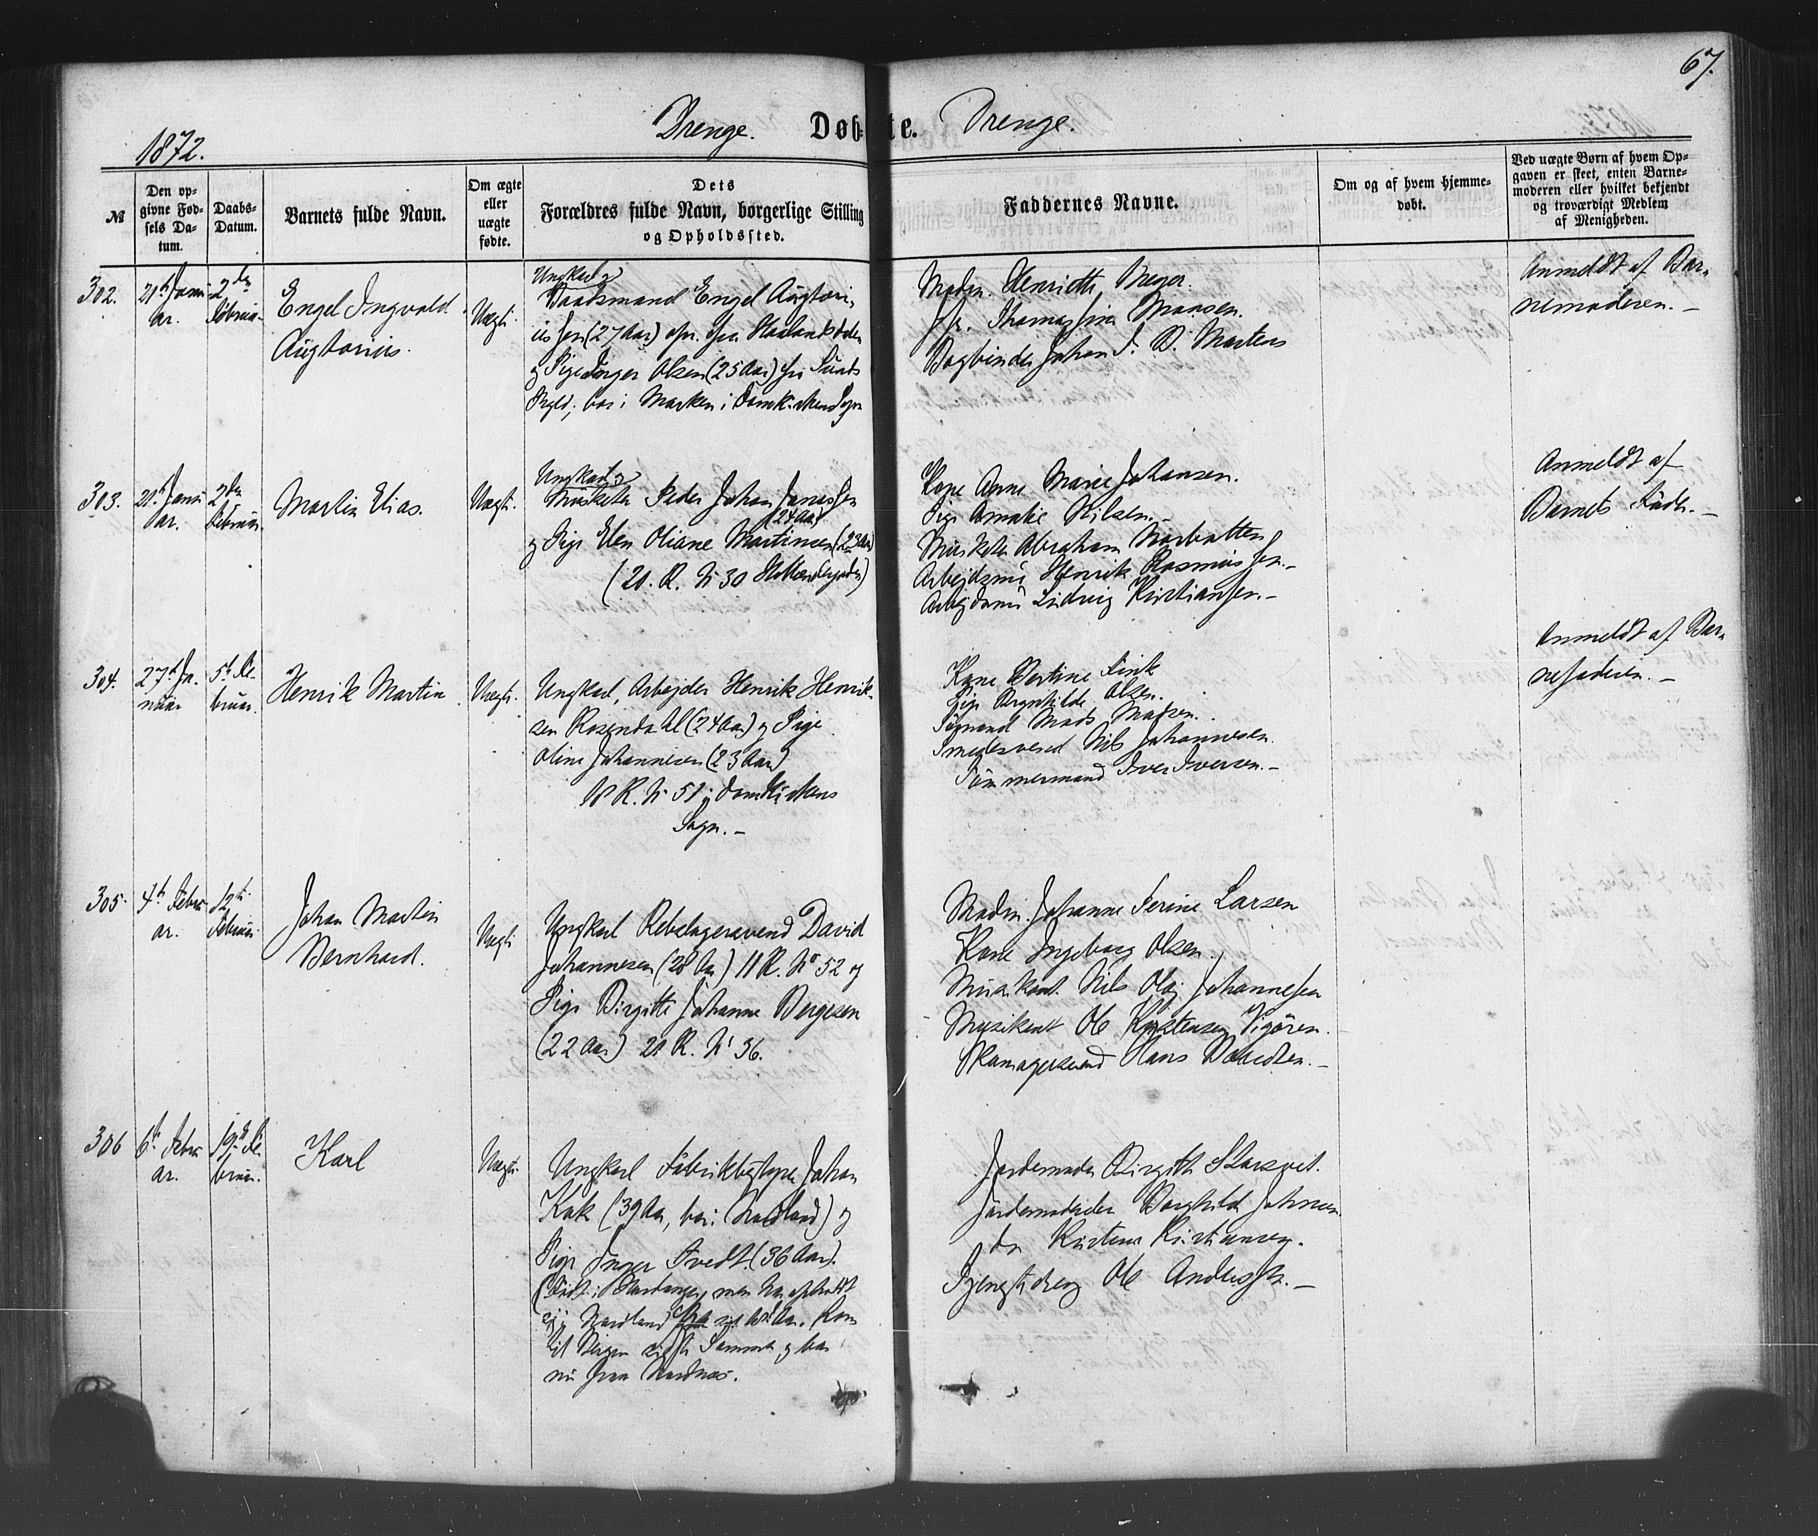 67.
1872.
Drenge. Døbte. Drenge.
№
Den opgivne Fødsels Datum.
Daabs-Datum.
Barnets fulde Navn.
Om ægte eller uægte fødte.
Dets Forældres fulde Navn, borgerlige Stilling og Opholdssted.
Faddernes Navne.
Om og af hvem hjemmedøbt.
Ved uægte Børn af hvem Opgaven er skeet, enten Barnemoderen eller hvilket bekjendt og troværdigt Medlem af Menigheden.
302.
21de Janu
ar.
2den
Februar
Engel Ingvald
Augtorius.
Uægte
Ungkarl
Baadsmand Engel Augtori
(27 Aar)
og Pige Inger Olsen (25 Aar) fra
bor i Marken i Domkirkens Sogn
Madm. Henriette Meyer.
Jfr. Thomassine Monsen.
Bogbinder Johan F. D. Martens
Anmeldt af Bar-
nemoderen. —
303.
21de Janu
ar.
2den
Februar.
Martin Elias.
Uægte.
Ungkarl
Musketer Peder Johan Jonassen
(24 Aar)
og Pige Elen Oliane Martinsen (23 Aar)
(21. R. Nr 30 Hollendergaden)
Kone Anne Marie Johansen.
Pige Amalie Nilsen. —
Musketer Abraham Norbotten
Arbejdsmd Henrik Rasmussen. —
Arbejdsmd Ludvig Kristiansen. —
Anmeldt af
Barnets Fader. —
304.
27de Ja-
nuar
5te Fe-
bruar.
Henrik Martin
Uægte.
Ungkarl, Arbejder Henrik Henrik-
sen Rosendahl (24 Aar) og Pige
Oline Johannesen (23 Aar)
18 R. Nr 51 i Domkirkens
Sogn. —
Kone Bertine Fink
Pige Bryntilde Olsen.
Sømand Mads Madsen.
Smedesvend Nils Johannesen
Tømmermand Iver Iversen. —
Anmeldt af Bar-
nefaderen. —
305.
4de Febru
ar.
12te
Februar.
Johan Martin
Bernhard.
Uægte
Ungkarl Rebslagersvend David
Johannesen (28 Aar) 11 R. No 52 og
Pige Birgitte Johanne Bergesen
(22 Aar) 21 R. Nr 36.
Madm. Johanne Serine Larsen
Kone Ingeborg Olsen.
Musikant Nils Olaj Johannesen
Musikant Ole Kristensen Vigøren.
Skomagersvend Hans Davidsen. —
306
6te Febru
ar.
19de Fe-
bruar.
Karl
Uægte.
Ungkarl Fabrikbestyrer Johan
Kak (39 Aar, bor i Nordland) og
Pige Inger Tvedt. (36 Aar).
(Født i Hardanger, men har opholdt
sig i Nordland
til Bergen sidste Sommer og bor
nu paa Nordnes.
Jordemoder Birgitte Storsvet.
Jordemoder Borghild Johnsen.
do Kirstine Kristiansen.
Tjenestedreng Ole Andersen. —